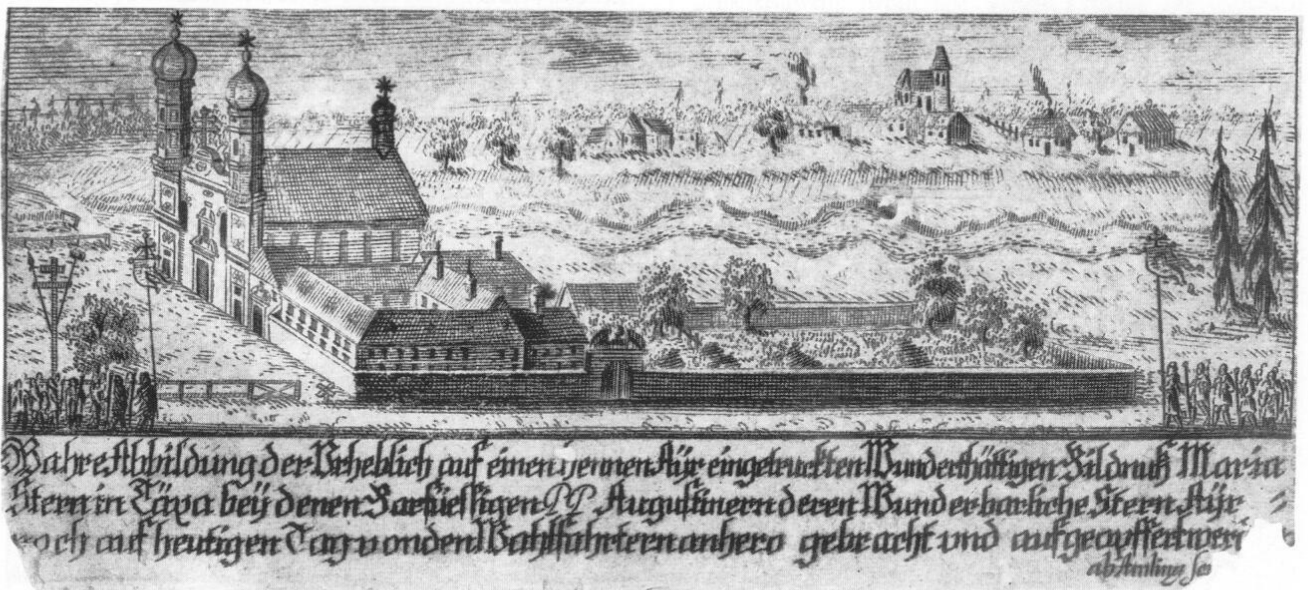 Wahre Abbildung der Vrheblich auf einen hennen Ayr eingetruckten Wunderthättigen Bildnuß Maria
Stern in Täxa beÿ denen Barfüessigen PP. Augustinern deren Wunderbarliche Stern Ayr
noch auf heutigen Tag von den Wahlfahrtern anhero gebracht vnd aufgeopffert